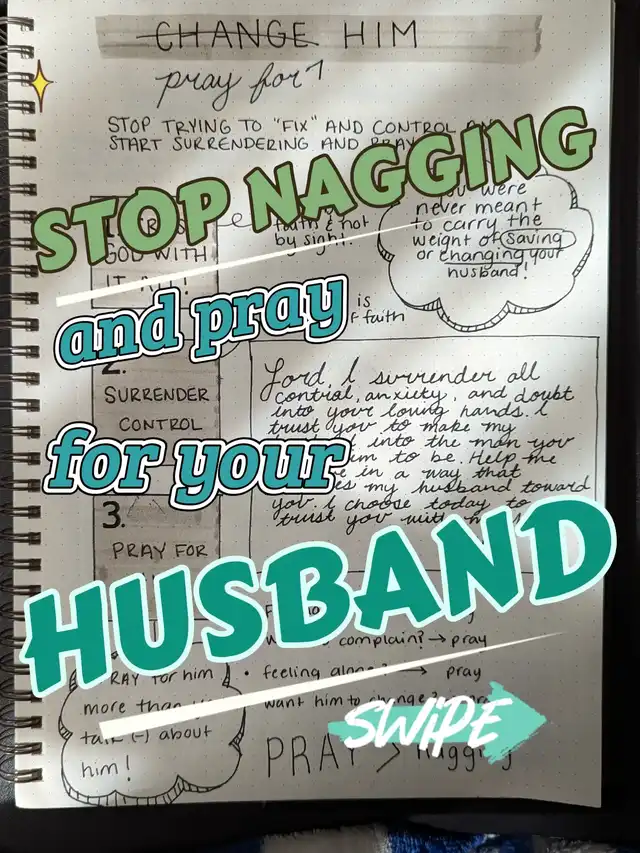 CHANGE HIM
pray for
STOP TRYING TO "FIX" AND CONTROL
START SURRENDERING AND
STOP NAGGING
and pray
for your
HUSBAND
SWIPE
faith & not
by sight.
GOD WITH
IT ALL!
were
never meant
to carry the
weight of saving
or changing your
husband!
is
faith
2.
SURRENDER
CONTROL
3.
PRAY FOR
Lord, I surrender all
control, anxiety, and doubt
into your loving hands. I
trust you to make my
into the man you
him to be. Help me
in a way that
my husband toward
you. I choose today to
trust you with
complain? → pray
• feeling alone? → pray
want him to change?
PRAY for him
more than
talk (-) about
him!
PRAY > nagging